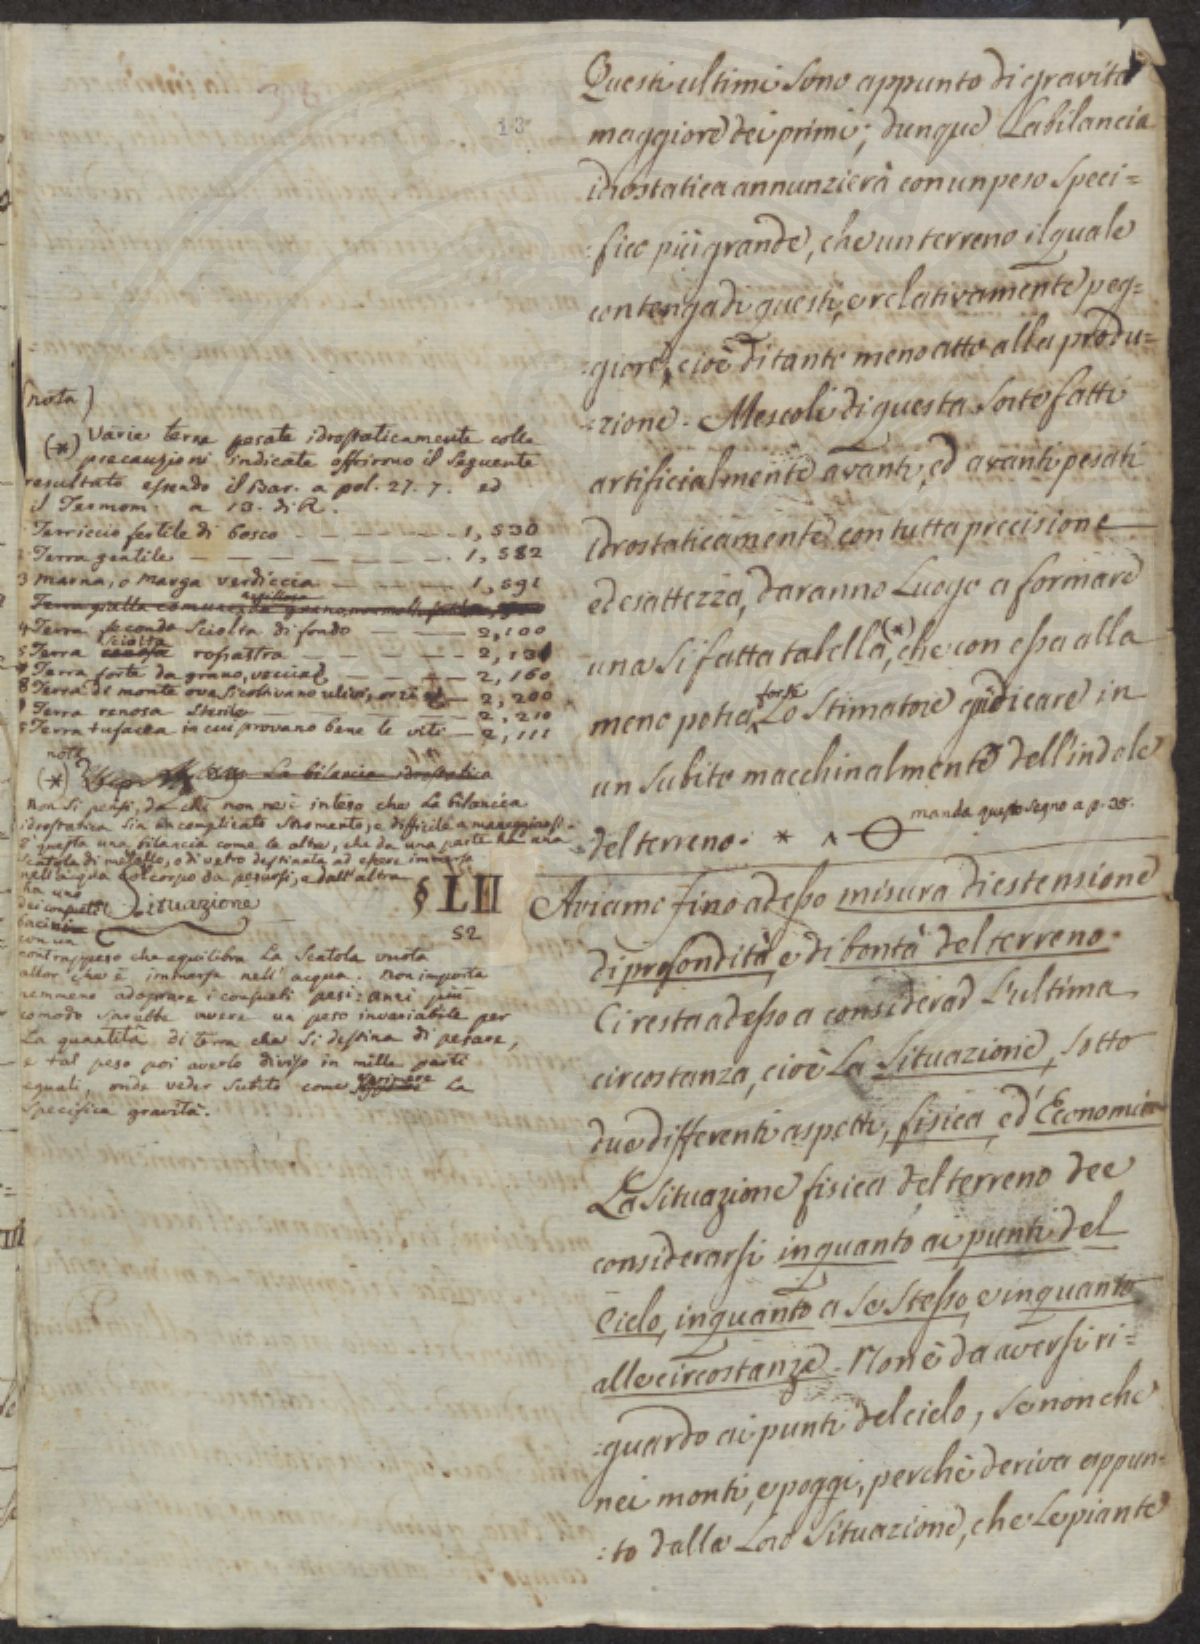 13
Questi ultimi sono appunto di gravità
maggiore dei primi; dunque La bilancia
idrostatica annunzierà con un peso speci=
:fico più grande, che un terreno il quale
contenga di questi, e relativamente peg=
:giore, cioè di tanto meno atto alla produ=
:zione. Mescoli di questa sorte fatti
artificialmente avanti, ed avanti pesati
idrostaticamente con tutta precisione
ed esattezza, daranno Luogo a formare
una sì fatta tabella (*), che con essa alla
mano potrà forse Lo Stimatore giudicare in
un subito macchinalmente dell'indole
del terreno. * ^ manda questo segno a p. 38.
(nota)
(*) Varie terre pesate idrostaticamente colle
precauzioni indicate offrirono il seguente
resultato essendo il Bar. a pol. 27. 7. ed
il Termom. a 13. di R.
Terriccio fertile di bosco — 1,530
2 Terra gentile — 1,582
3 Marna, o Marga verdiccia — 1,591
Terra gialla comune da grano
4 Terra seconda sciolta di fondo — 2,100
5 Terra sciolta renosa rossastra — 2,131
Terra forte da grano, — 2,160
8 Terra di monte ove si coltivano ulivi, — 2,200
9 Terra renosa sterile — 2,210
Terra tufacea in cui provano bene le viti — 2,111
nota
(*) La bilancia idrostatica
Non si pensi, da chi non ne è inteso che La bilancia
idrostatica sia un complicato stromento, e difficile a maneggiarsi.
È questa una bilancia come le altre, che da una parte ha una
scatola di metallo, o di vetro destinata ad essere immersa
nell'acqua col corpo da pesarsi, e dall'altra
ha uno
dei consueti
bacini
con un
contrappeso che equilibra La Scatola vuota
allor che è immersa nell'acqua. Non importa
nemmeno adoprare i consueti pesi: anzi più
comodo sarebbe avere un peso invariabile per
La quantità di terra che si destina di pesare,
e tal peso poi averlo diviso in mille parti
eguali, onde veder subito come La
specifica gravità.
Situazione
§ LII
52
Aviamo fino adesso misura di estensione
di profondità, e di bontà del terreno.
Ci resta adesso a considerar L'ultima
circostanza, cioè La Situazione, sotto
due differenti aspetti, fisica, ed Economica
La Situazione fisica del terreno dee
considerarsi in quanto ai punti del
Cielo, in quanto a se stesso, e in quanto
alle circostanze. Non è da aversi ri=
:guardo ai punti del cielo, se non che
nei monti, e poggi, perchè deriva appun=
:to dalla Loro Situazione, che Le piante